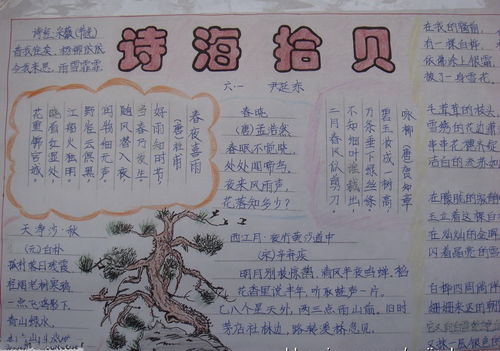 诗海拾贝
六·一
诗经·采薇(节选)
昔我往矣,杨柳依依
今我来思,雨雪霏霏。
春夜喜雨
(唐)杜甫
好雨知时节,
当春乃发生
随风潜入夜
润物细无声
野径云俱黑
江船火独明
晓看红湿处
花重锦官城。
春晓
(唐)孟浩然
春眠不觉晓,
处处闻啼鸟。
夜来风雨声,
花落知多少?
咏柳(唐)贺知章
碧玉妆成一树高,
万条垂下绿丝绦。
不知细叶谁裁出,
二月春风似剪刀。
天净沙·秋
(元)白朴
孤村落日残霞
轻烟老树寒鸦
一点飞鸿影下
青山绿水,
西江月·夜行黄沙道中
(宋)辛弃疾
明月别枝惊鹊,清风半夜鸣蝉,稻
花香里说丰年,听取蛙声一片。
七八个星天外,两三点雨山前。旧时
茅店社林边,路转溪桥忽见。
在我的窗前,
有一棵白桦,
仿佛涂上银霜,
披了一身雪花。
毛茸茸的枝头,
雪绣的花边潇
串串花穗齐绽
洁白的流苏如
在朦胧的寂静
玉立着这棵白
在灿灿的金晖
闪着晶亮的雪
白桦四周徜徉
姗姗来迟的朝
又抹一层银色的